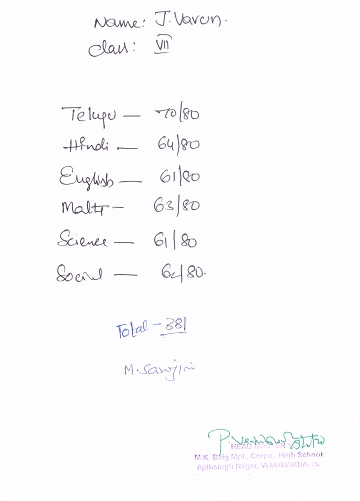 Name: J. Varun.
Class: VII
Telugu — 70/80
Hindi — 64/80
English — 61/80
Maths — 63/80
Science — 61/80
Social — 62/80.
Total - 381
M. Sarojini
HEAD
M.K. Baig Mpl. Corpn. High School
Ajithsingh Nagar, VIJAYAWADA-15.